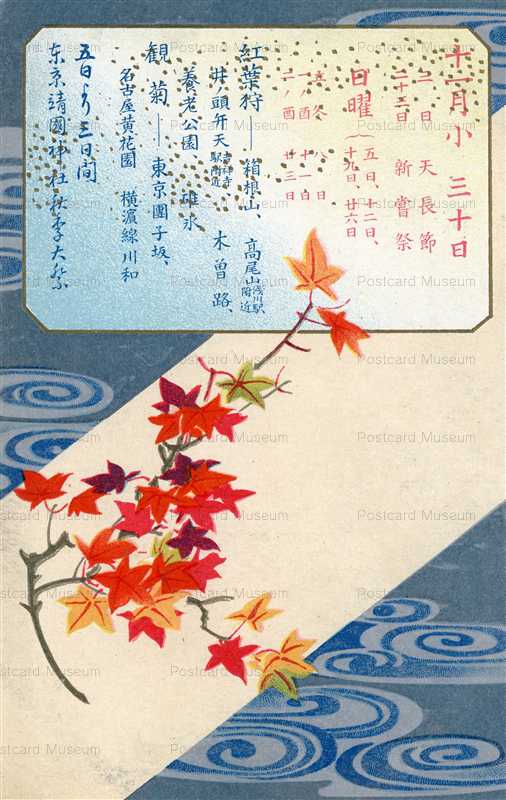 十一月小 三十日
三日 天長節
二十三日 新嘗祭
日曜 五日、十二日、
十九日、廿六日
立冬 八日
一ノ酉 十一日
二ノ酉 廿三日
紅葉狩——箱根山、高尾山浅川駅附近
井ノ頭弁天吉祥寺駅南近 木曽路、
養老公園、雄永
観菊——東京團子坂、
名古屋黄花園 横濱線川和
五日より三日間
东京靖國神社秋季大祭
Postcard Museum